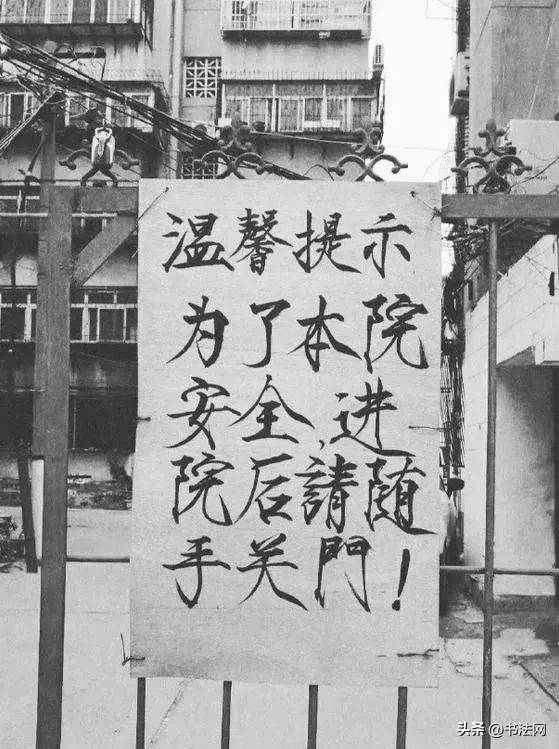 温馨提示
为了本院
安全,进
院后請随
手关門!
头条 @书法网